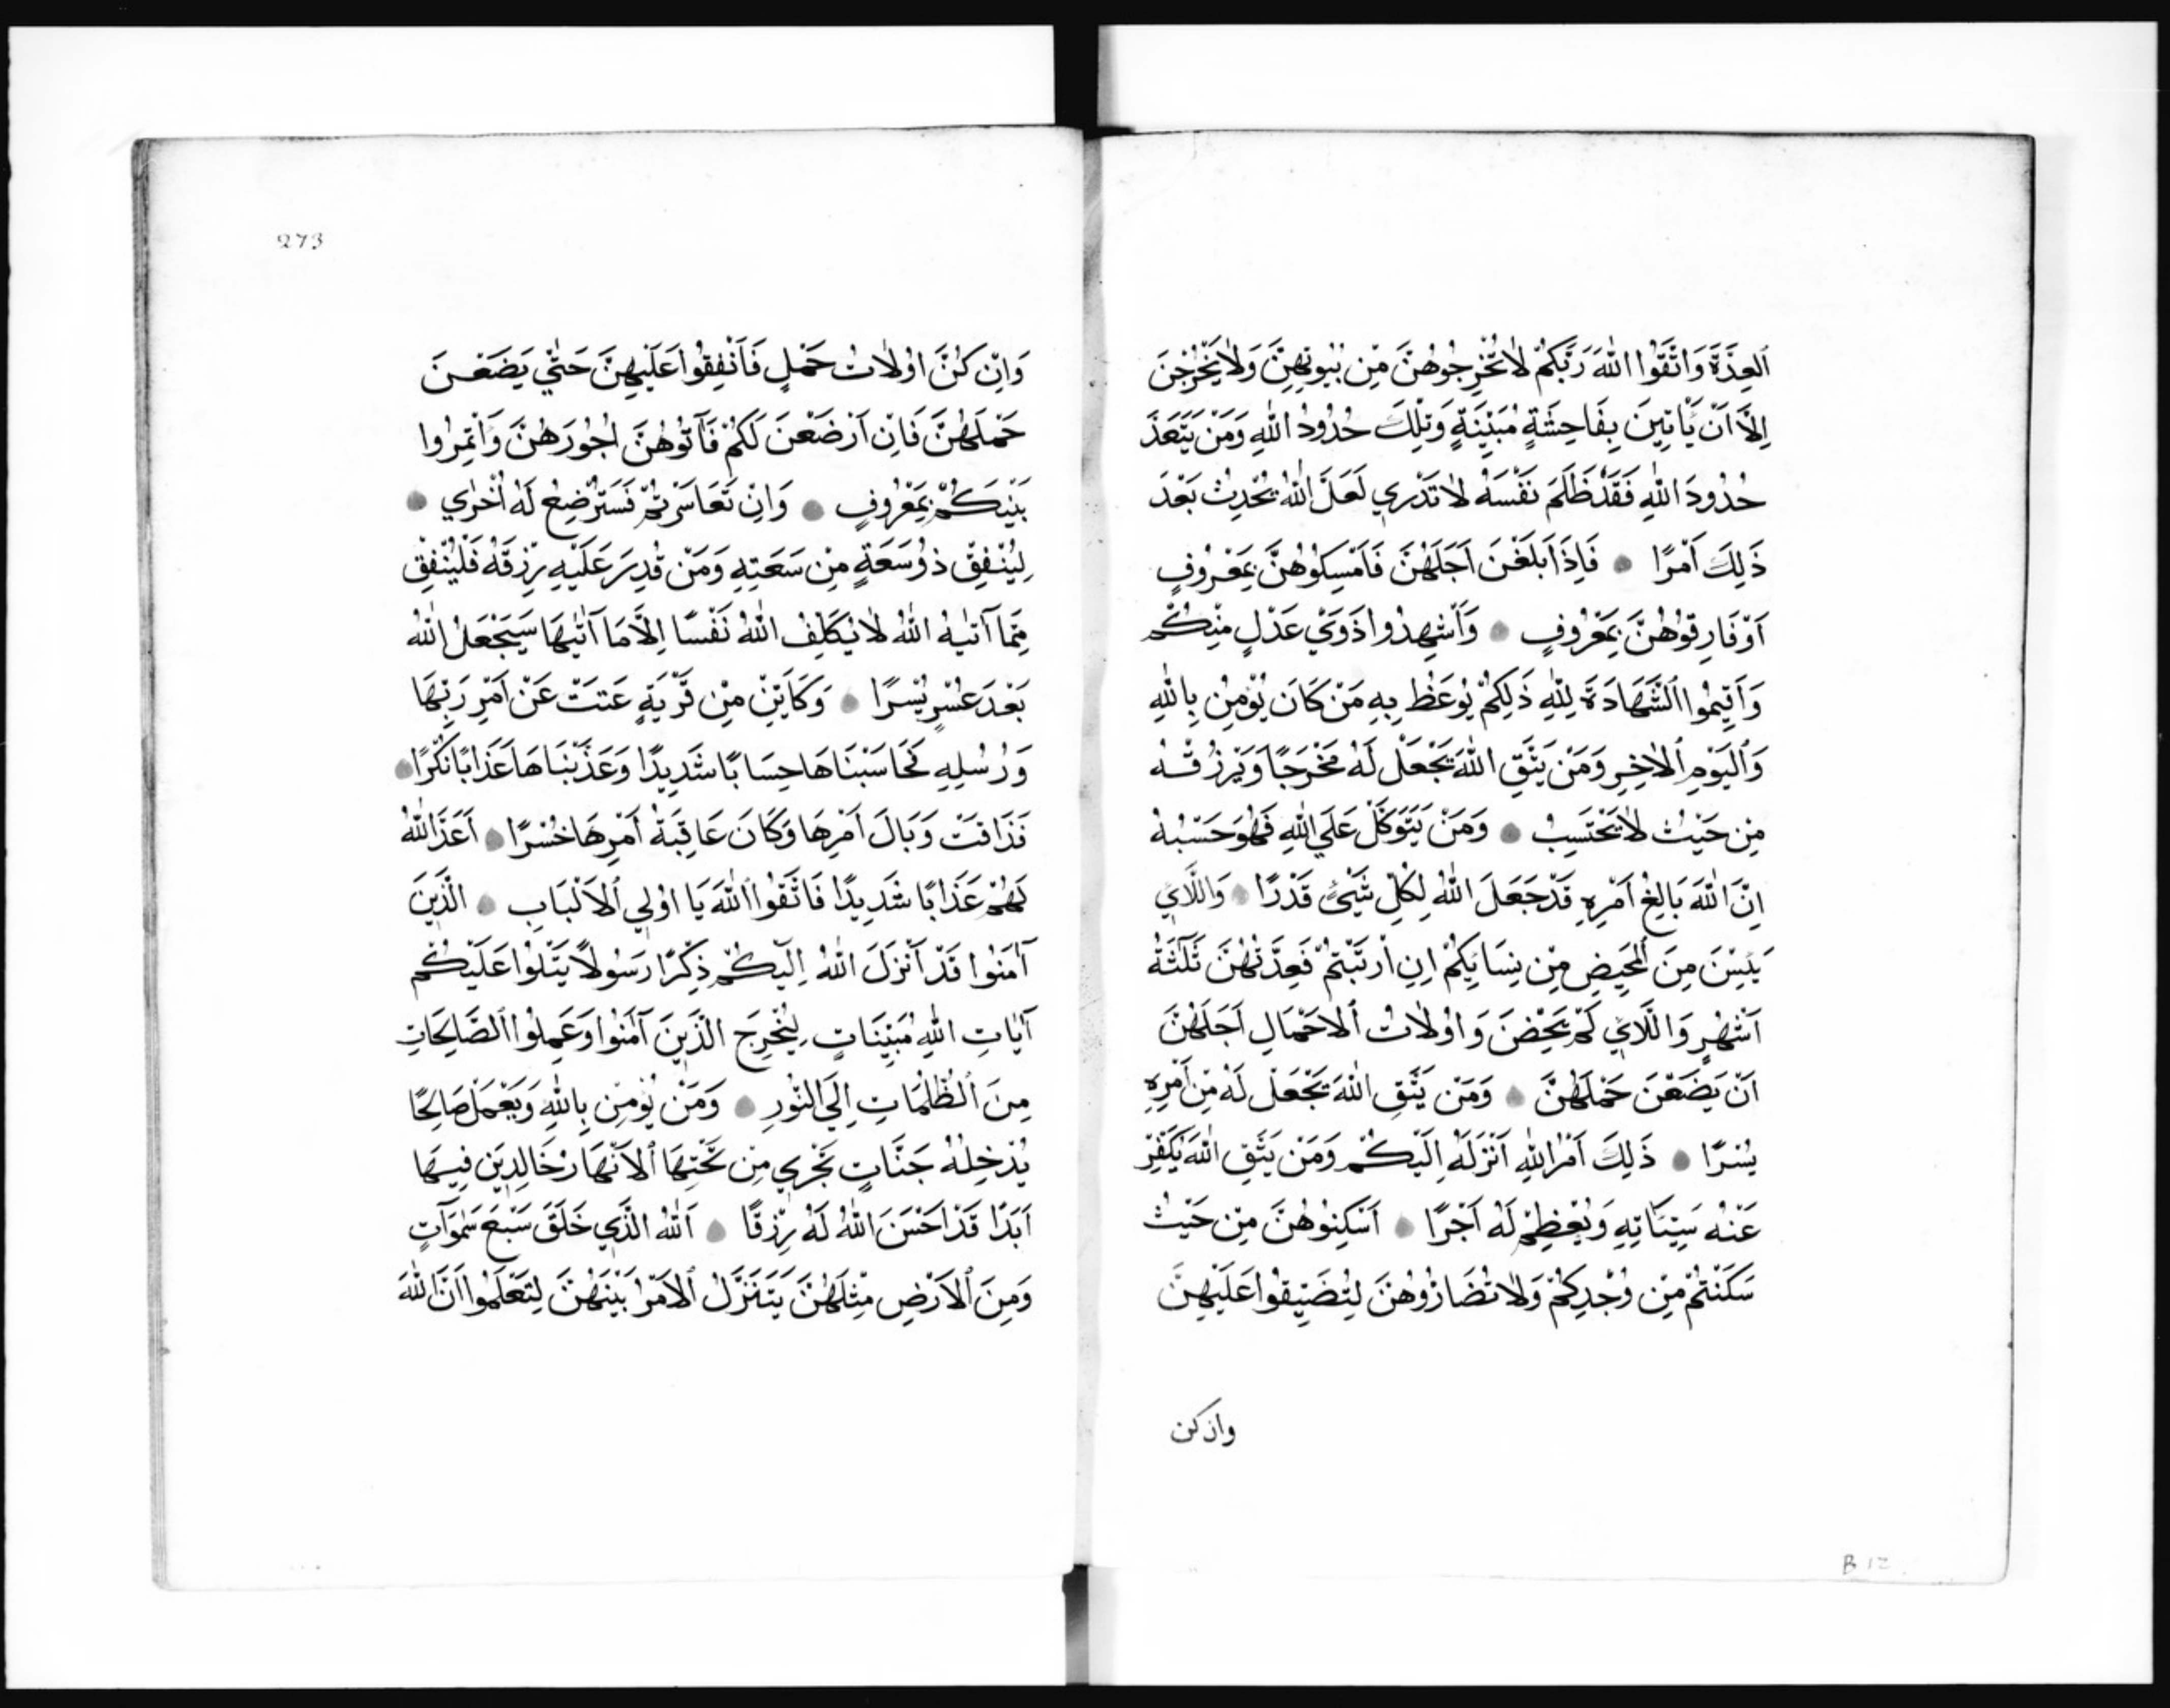 ٱلْعِدَّةَ وَاتَّقُوا اللّٰهَ رَبَّكُمْ لَا تُخْرِجُوهُنَّ مِنْ بُيُوتِهِنَّ وَلَا يَخْرُجْنَ
اِلَّا اَنْ يَأْتِينَ بِفَاحِشَةٍ مُبَيِّنَةٍ وَتِلْكَ حُدُودُ اللّٰهِ وَمَنْ يَتَعَدَّ
حُدُودَ اللّٰهِ فَقَدْ ظَلَمَ نَفْسَهُ لَا تَدْرِي لَعَلَّ اللّٰهَ يُحْدِثُ بَعْدَ
ذَلِكَ اَمْرًا ● فَاِذَا بَلَغْنَ اَجَلَهُنَّ فَاَمْسِكُوهُنَّ بِمَعْرُوفٍ
اَوْ فَارِقُوهُنَّ بِمَعْرُوفٍ ● وَاَشْهِدُوا ذَوَيْ عَدْلٍ مِنْكُمْ
وَاَقِيمُوا ٱلشَّهَادَةَ لِلّٰهِ ذَلِكُمْ يُوعَظُ بِهِ مَنْ كَانَ يُؤْمِنُ بِاللّٰهِ
وَٱلْيَوْمِ ٱلْاٰخِرِ وَمَنْ يَتَّقِ اللّٰهَ يَجْعَلْ لَهُ مَخْرَجًا وَيَرْزُقْهُ
مِنْ حَيْثُ لَا يَحْتَسِبُ ● وَمَنْ يَتَوَكَّلْ عَلَي اللّٰهِ فَهُوَ حَسْبُهُ
اِنَّ اللّٰهَ بَالِغُ اَمْرِهِ قَدْ جَعَلَ اللّٰهُ لِكُلِّ شَيْئٍ قَدْرًا ● وَاللَّائِي
يَئِسْنَ مِنَ ٱلْمَحِيضِ مِنْ نِسَائِكُمْ اِنِ ارْتَبْتُمْ فَعِدَّتُهُنَّ ثَلٰثَةُ
اَشْهُرٍ وَاللَّائِي لَمْ يَحِضْنَ وَاُولَاتُ ٱلْاَحْمَالِ اَجَلُهُنَّ
اَنْ يَضَعْنَ حَمْلَهُنَّ ● وَمَنْ يَتَّقِ اللّٰهَ يَجْعَلْ لَهُ مِنْ اَمْرِهِ
يُسْرًا ● ذَلِكَ اَمْرُ اللّٰهِ اَنْزَلَهُ اِلَيْكُمْ وَمَنْ يَتَّقِ اللّٰهَ يُكَفِّرْ
عَنْهُ سَيِّئَاتِهِ وَيُعْظِمْ لَهُ اَجْرًا ● اَسْكِنُوهُنَّ مِنْ حَيْثُ
سَكَنْتُمْ مِنْ وُجْدِكُمْ وَلَا تُضَارُّوهُنَّ لِتُضَيِّقُوا عَلَيْهِنَّ
وان كن
273
وَاِنْ كُنَّ اُولَاتُ حَمْلٍ فَاَنْفِقُوا عَلَيْهِنَّ حَتّٰي يَضَعْنَ
حَمْلَهُنَّ فَاِنْ اَرْضَعْنَ لَكُمْ فَآتُوهُنَّ اُجُورَهُنَّ وَأْتَمِرُوا
بَيْنَكُمْ بِمَعْرُوفٍ ● وَاِنْ تَعَاسَرْتُمْ فَسَتُرْضِعُ لَهُ اُخْرٰي ●
لِيُنْفِقْ ذُو سَعَةٍ مِنْ سَعَتِهِ وَمَنْ قُدِرَ عَلَيْهِ رِزْقُهُ فَلْيُنْفِقْ
مِمَّا آتٰيهُ اللّٰهُ لَا يُكَلِّفُ اللّٰهُ نَفْسًا اِلَّا مَا آتٰيهَا سَيَجْعَلُ اللّٰهُ
بَعْدَ عُسْرٍ يُسْرًا ● وَكَاَيِّنْ مِنْ قَرْيَةٍ عَتَتْ عَنْ اَمْرِ رَبِّهَا
وَرُسُلِهِ فَحَاسَبْنَاهَا حِسَابًا شَدِيدًا وَعَذَّبْنَاهَا عَذَابًا نُكْرًا ●
فَذَاقَتْ وَبَالَ اَمْرِهَا وَكَانَ عَاقِبَةُ اَمْرِهَا خُسْرًا ● اَعَدَّ اللّٰهُ
لَهُمْ عَذَابًا شَدِيدًا فَاتَّقُوا اللّٰهَ يَا اُولِي ٱلْاَلْبَابِ ● الَّذِينَ
آمَنُوا قَدْ اَنْزَلَ اللّٰهُ اِلَيْكُمْ ذِكْرًا رَسُولًا يَتْلُوا عَلَيْكُمْ
آيَاتِ اللّٰهِ مُبَيِّنَاتٍ لِيُخْرِجَ الَّذِينَ آمَنُوا وَعَمِلُوا ٱلصَّالِحَاتِ
مِنَ ٱلظُّلُمَاتِ اِلَي النُّورِ ● وَمَنْ يُؤْمِنْ بِاللّٰهِ وَيَعْمَلْ صَالِحًا
يُدْخِلْهُ جَنَّاتٍ تَجْرِي مِنْ تَحْتِهَا ٱلْاَنْهَارُ خَالِدِينَ فِيهَا
اَبَدًا قَدْ اَحْسَنَ اللّٰهُ لَهُ رِزْقًا ● اَللّٰهُ الَّذِي خَلَقَ سَبْعَ سَمٰوَاتٍ
وَمِنَ ٱلْاَرْضِ مِثْلَهُنَّ يَتَنَزَّلُ ٱلْاَمْرُ بَيْنَهُنَّ لِتَعْلَمُوا اَنَّ اللّٰهَ
B 12